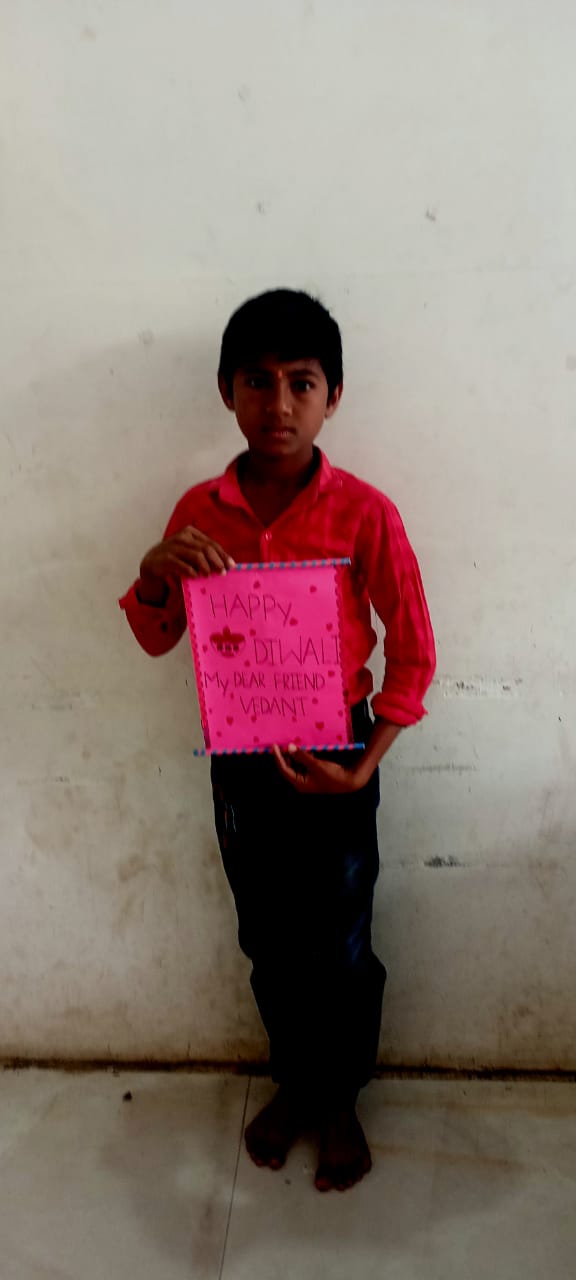 HAPPY
DIWALI
My DEAR FRIEND
VEDANT